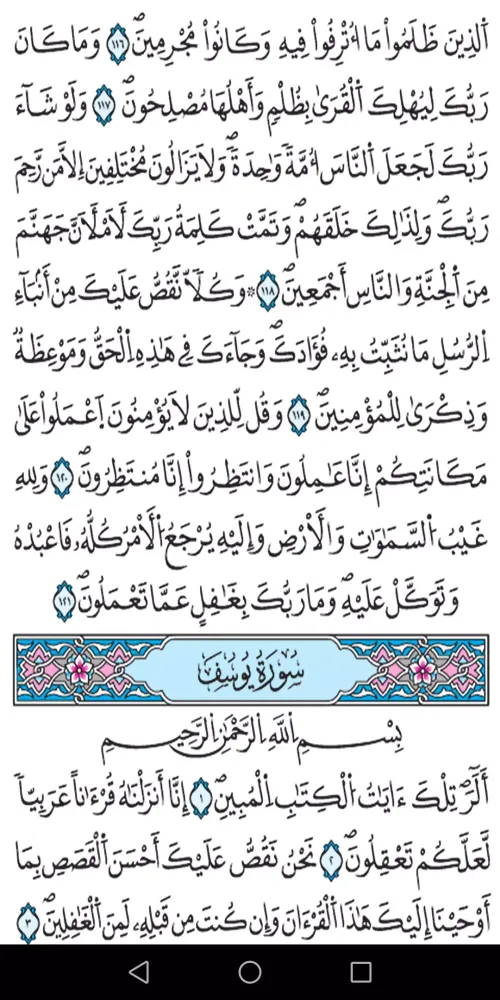 اَلذِينَ ظَلَمُواْ مَا اُتْرِفُواْ فِيهِ وَكَانُواْ مُجْرِمِينَۖ ١١٦ وَمَا كَانَ
رَبُّكَ لِيُهْلِكَ اَلْقُرَىٰ بِظُلْمٖ وَأَهْلُهَا مُصْلِحُونَۖ ١١٧ وَلَوْ شَآءَ
رَبُّكَ لَجَعَلَ اَلنَّاسَ أُمَّةٗ وَٰحِدَةٗۖ وَلَا يَزَالُونَ مُخْتَلِفِينَ إِلَّا مَن رَّحِمَ
رَبُّكَۖ وَلِذَٰلِكَ خَلَقَهُمْۖ وَتَمَّتْ كَلِمَةُ رَبِّكَ لَأَمْلَأَنَّ جَهَنَّمَ
مِنَ اَلْجِنَّةِ وَالنَّاسِ أَجْمَعِينَۖ ١١٨ ۞ وَكُلّاٗ نَّقُصُّ عَلَيْكَ مِنْ أَنۢبَآءِ
اِلرُّسُلِ مَا نُثَبِّتُ بِهِۦ فُؤَادَكَۖ وَجَآءَكَ فِے هَٰذِهِ اِلْحَقُّ وَمَوْعِظَةٞ
وَذِكْرَىٰ لِلْمُؤْمِنِينَۖ ١١٩ وَقُل لِّلذِينَ لَا يُؤْمِنُونَ اَعْمَلُواْ عَلَىٰ
مَكَانَتِكُمُۥ إِنَّا عَٰمِلُونَ وَانتَظِرُواْ إِنَّا مُنتَظِرُونَۖ ١٢٠ وَلِلهِ
غَيْبُ اُلسَّمَٰوَٰتِ وَالْأَرْضِ وَإِلَيْهِ يُرْجَعُ اُلْأَمْرُ كُلُّهُۥ فَاعْبُدْهُ
وَتَوَكَّلْ عَلَيْهِۖ وَمَا رَبُّكَ بِغَٰفِلٍ عَمَّا تَعْمَلُونَۖ ١٢١
سُورَةُ يُوسُفَ
بِسْمِ اِللَّهِ اِلرَّحْمَٰنِ اِلرَّحِيمِ
أَلَٓرۖ تِلْكَ ءَايَٰتُ اُلْكِتَٰبِ اِلْمُبِينِۖ ١ إِنَّآ أَنزَلْنَٰهُ قُرْءَٰناً عَرَبِيّاٗ
لَّعَلَّكُمْ تَعْقِلُونَۖ ٢ نَحْنُ نَقُصُّ عَلَيْكَ أَحْسَنَ اَلْقَصَصِ بِمَآ
أَوْحَيْنَآ إِلَيْكَ هَٰذَا اَلْقُرْءَانَ وَإِن كُنتَ مِن قَبْلِهِۦ لَمِنَ اَلْغَٰفِلِينَۖ ٣